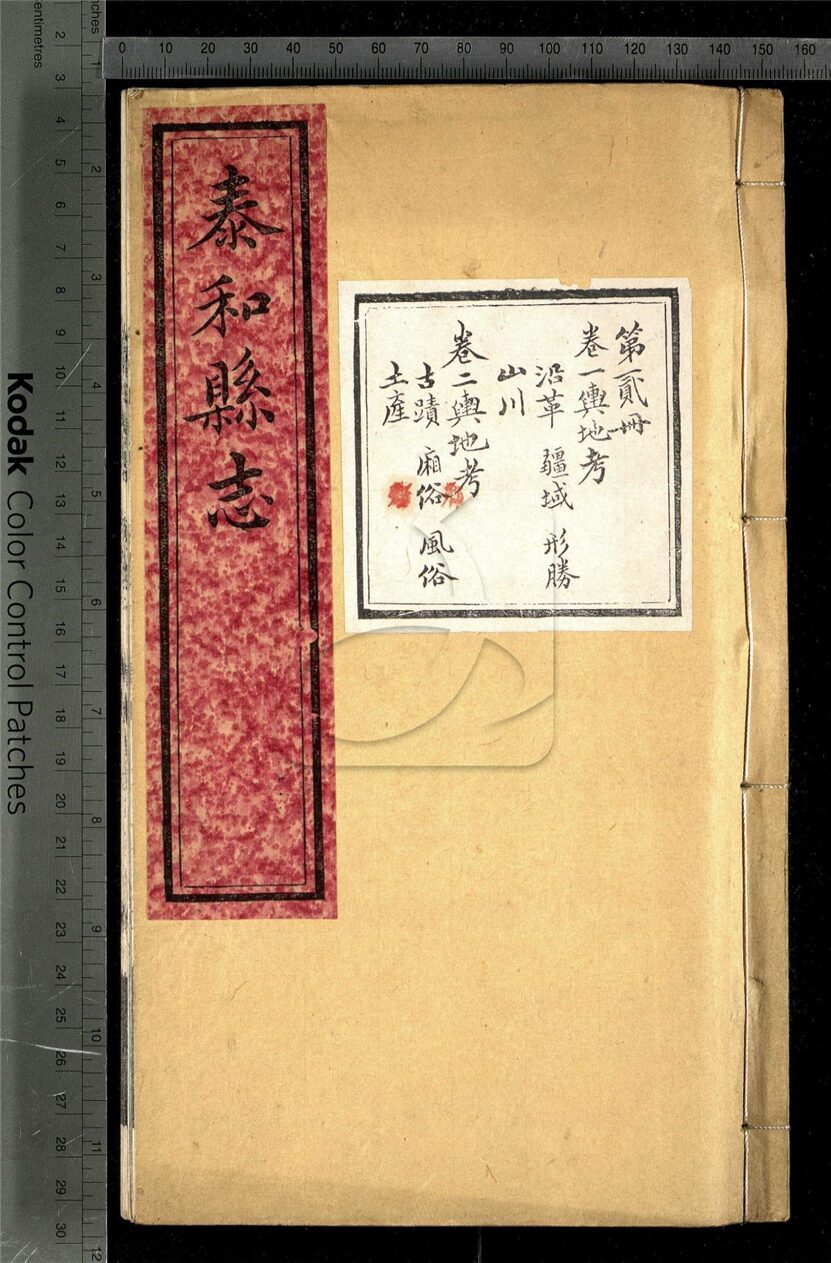 0 10 20 30 40 50 60 70 80 90 100 110 120 130 140 150 160
第貳冊
卷一輿地考
沿革 疆域 形勝
山川
卷二輿地考
古蹟 廂俗 風俗
土產
泰和縣志
inches 1 2 3 4 5 6 7 8 9 10 11 12
centimetres 2 3 4 5 6 7 8 9 10 11 12 13 14 15 16 17 18 19 20 21 22 23 24 25 26 27 28 29 30
Kodak Color Control Patches